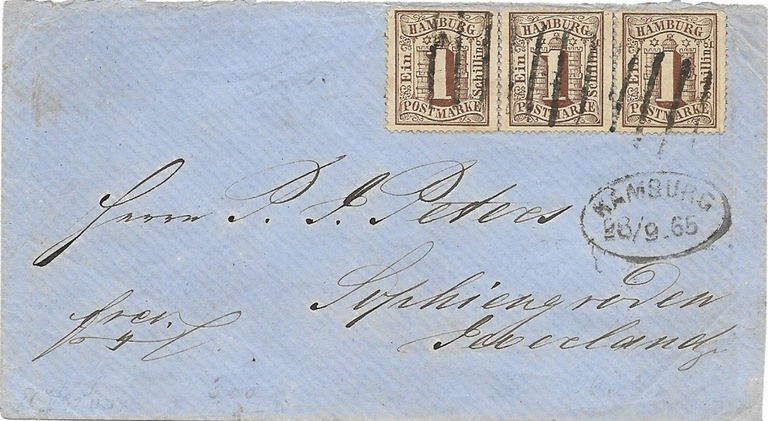 HAMBURG HAMBURG HAMBURG
Ein 1 Schilling Ein 1 Schilling 1 Schilling
POSTMARKE POSTMARKE POSTMARKE
HAMBURG
28/9.65
Herrn P. J. Peters
Sophiengroden
frei.
Jeverland